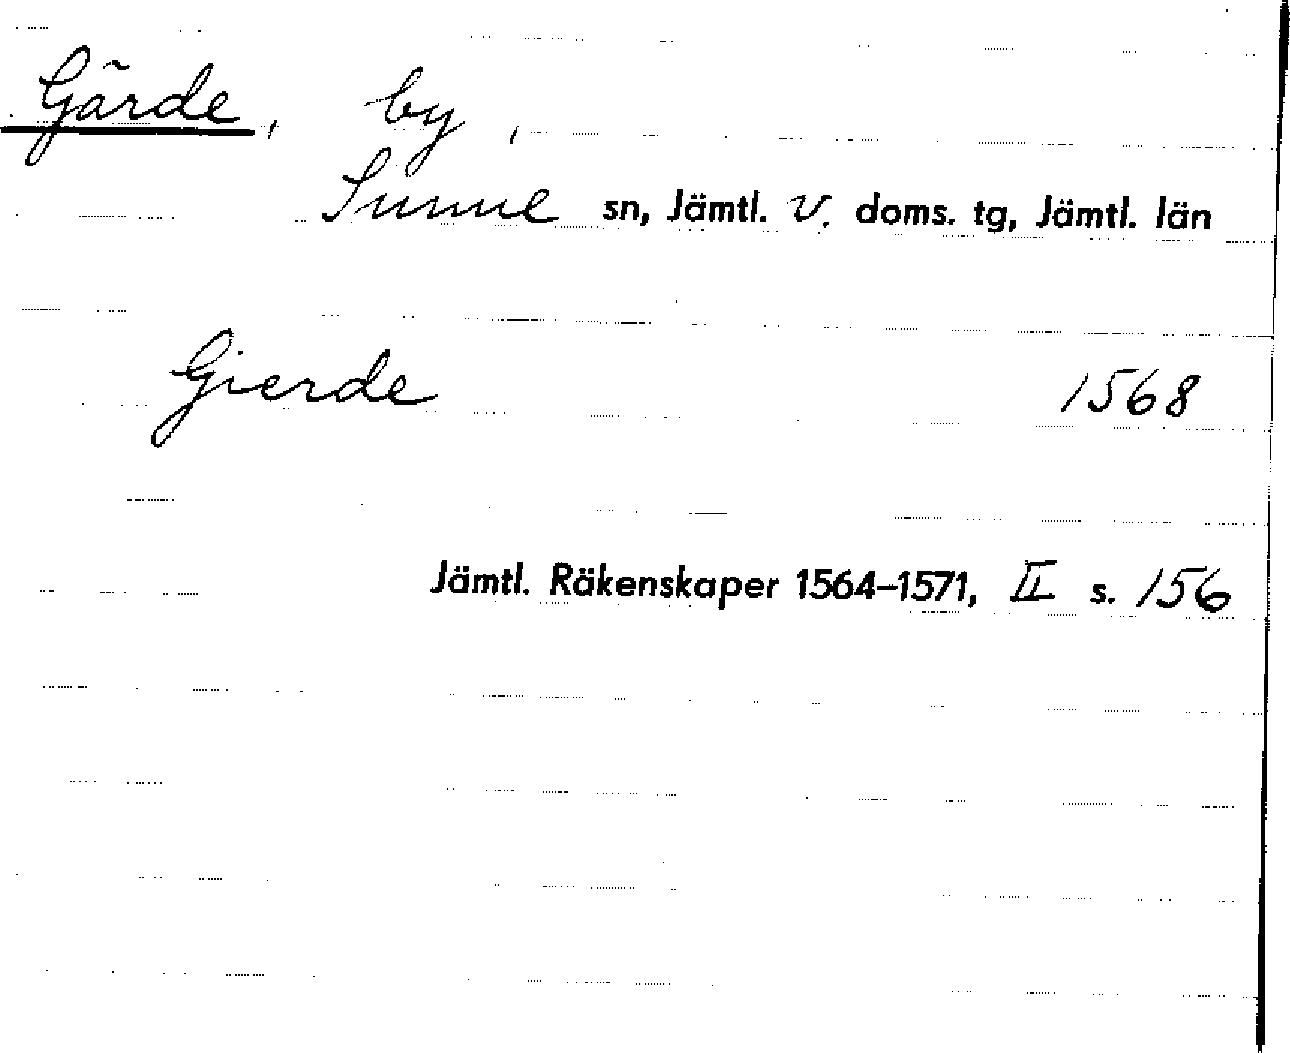 Gärde, by,
Sunne sn, Jämtl. v. doms. tg, Jämtl. län
Gierde 1568
Jämtl. Räkenskaper 1564–1571, II s. 156